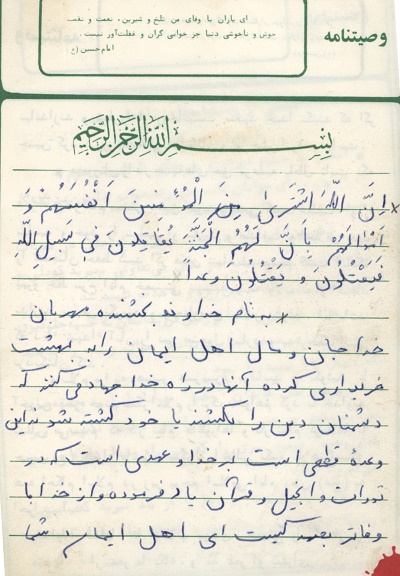 وصیتنامه
ای یاران با وفای من تلخ و شیرین، نعمت و نقمت
خوش و ناخوشی دنیا جز خوابی گران و غفلت‌آور نیست.
امام حسین (ع)
بسم الله الرحمن الرحیم
إنَّ اللهَ اشْتَرىٰ مِنَ الْمُؤمِنینَ أَنْفُسَهُمْ وَ
أَمْوالَهُمْ بِاَنَّ لَهُمُ الْجَنَّةَ یُقاتِلُونَ فی سَبیلِ اللهِ
فَیَقْتُلُونَ وَ یُقْتَلُونَ وَعداً
به نام خداوند بخشنده مهربان
خدا جان و مال اهل ایمان را به بهشت
خریداری کرده آنها در راه خدا جهاد می کنند که
دشمنان دین را بکشند یا خود کشته شوند این
وعدهٔ قطعی است بر خدا و عهدی است که در
تورات و انجیل و قرآن یاد فرموده و از خدا با
وفاتر بعهد کیست ای اهل ایمان شما